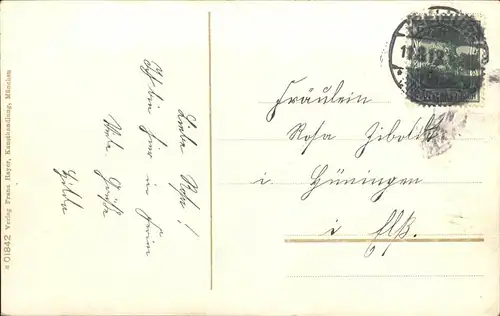 Liebe Rosa!
Ich bin hier in
Viele Grüße
Hilda
Fräulein
Rosa Zibold
i. Hüningen
i Elß.
01842 Verlag Franz Hayer, Kunsthandlung, München